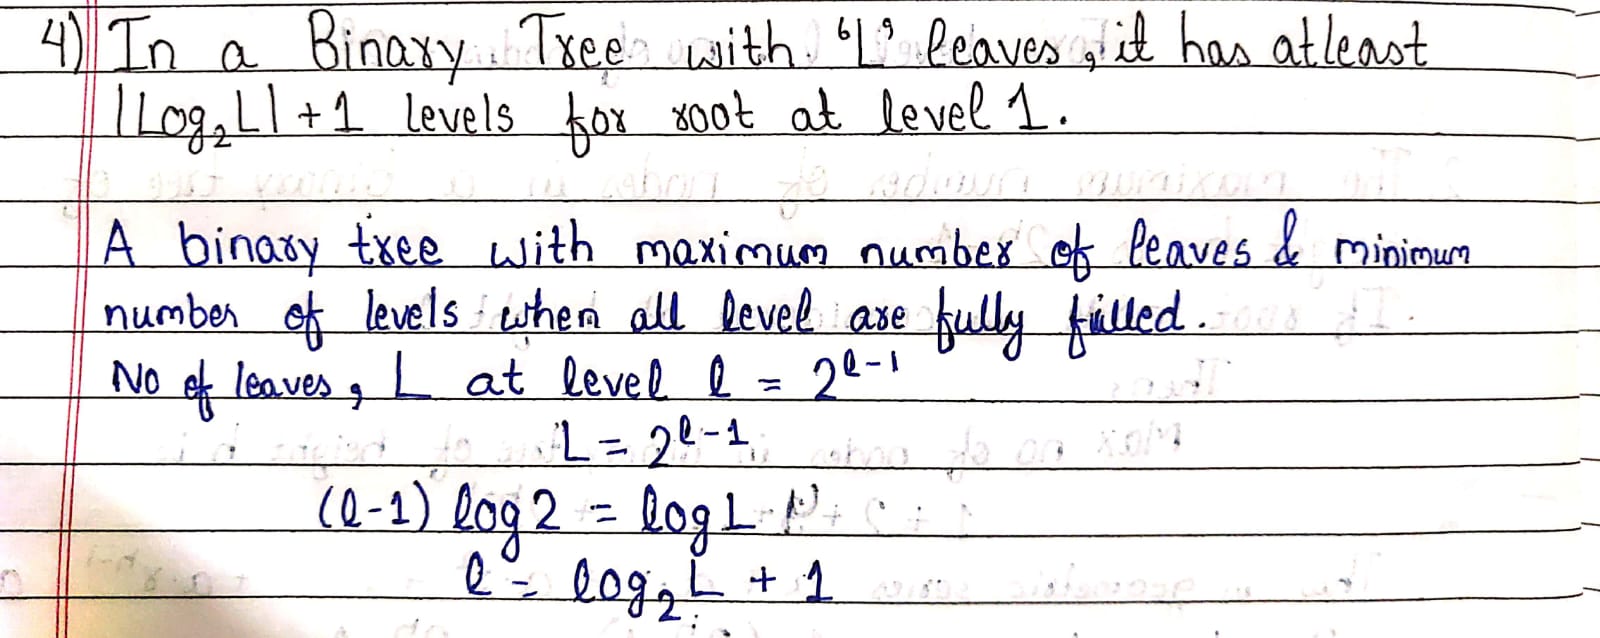 4) In a Binary Tree with 'L' leaves, it has atleast
|Log₂L| + 1 levels for root at level 1.
A binary tree with maximum number of leaves & minimum
number of levels when all level are fully filled.
No of leaves, L at level l = 2^(l-1)
L = 2^(l-1)
(l-1) log 2 = log L
l = log₂ L + 1